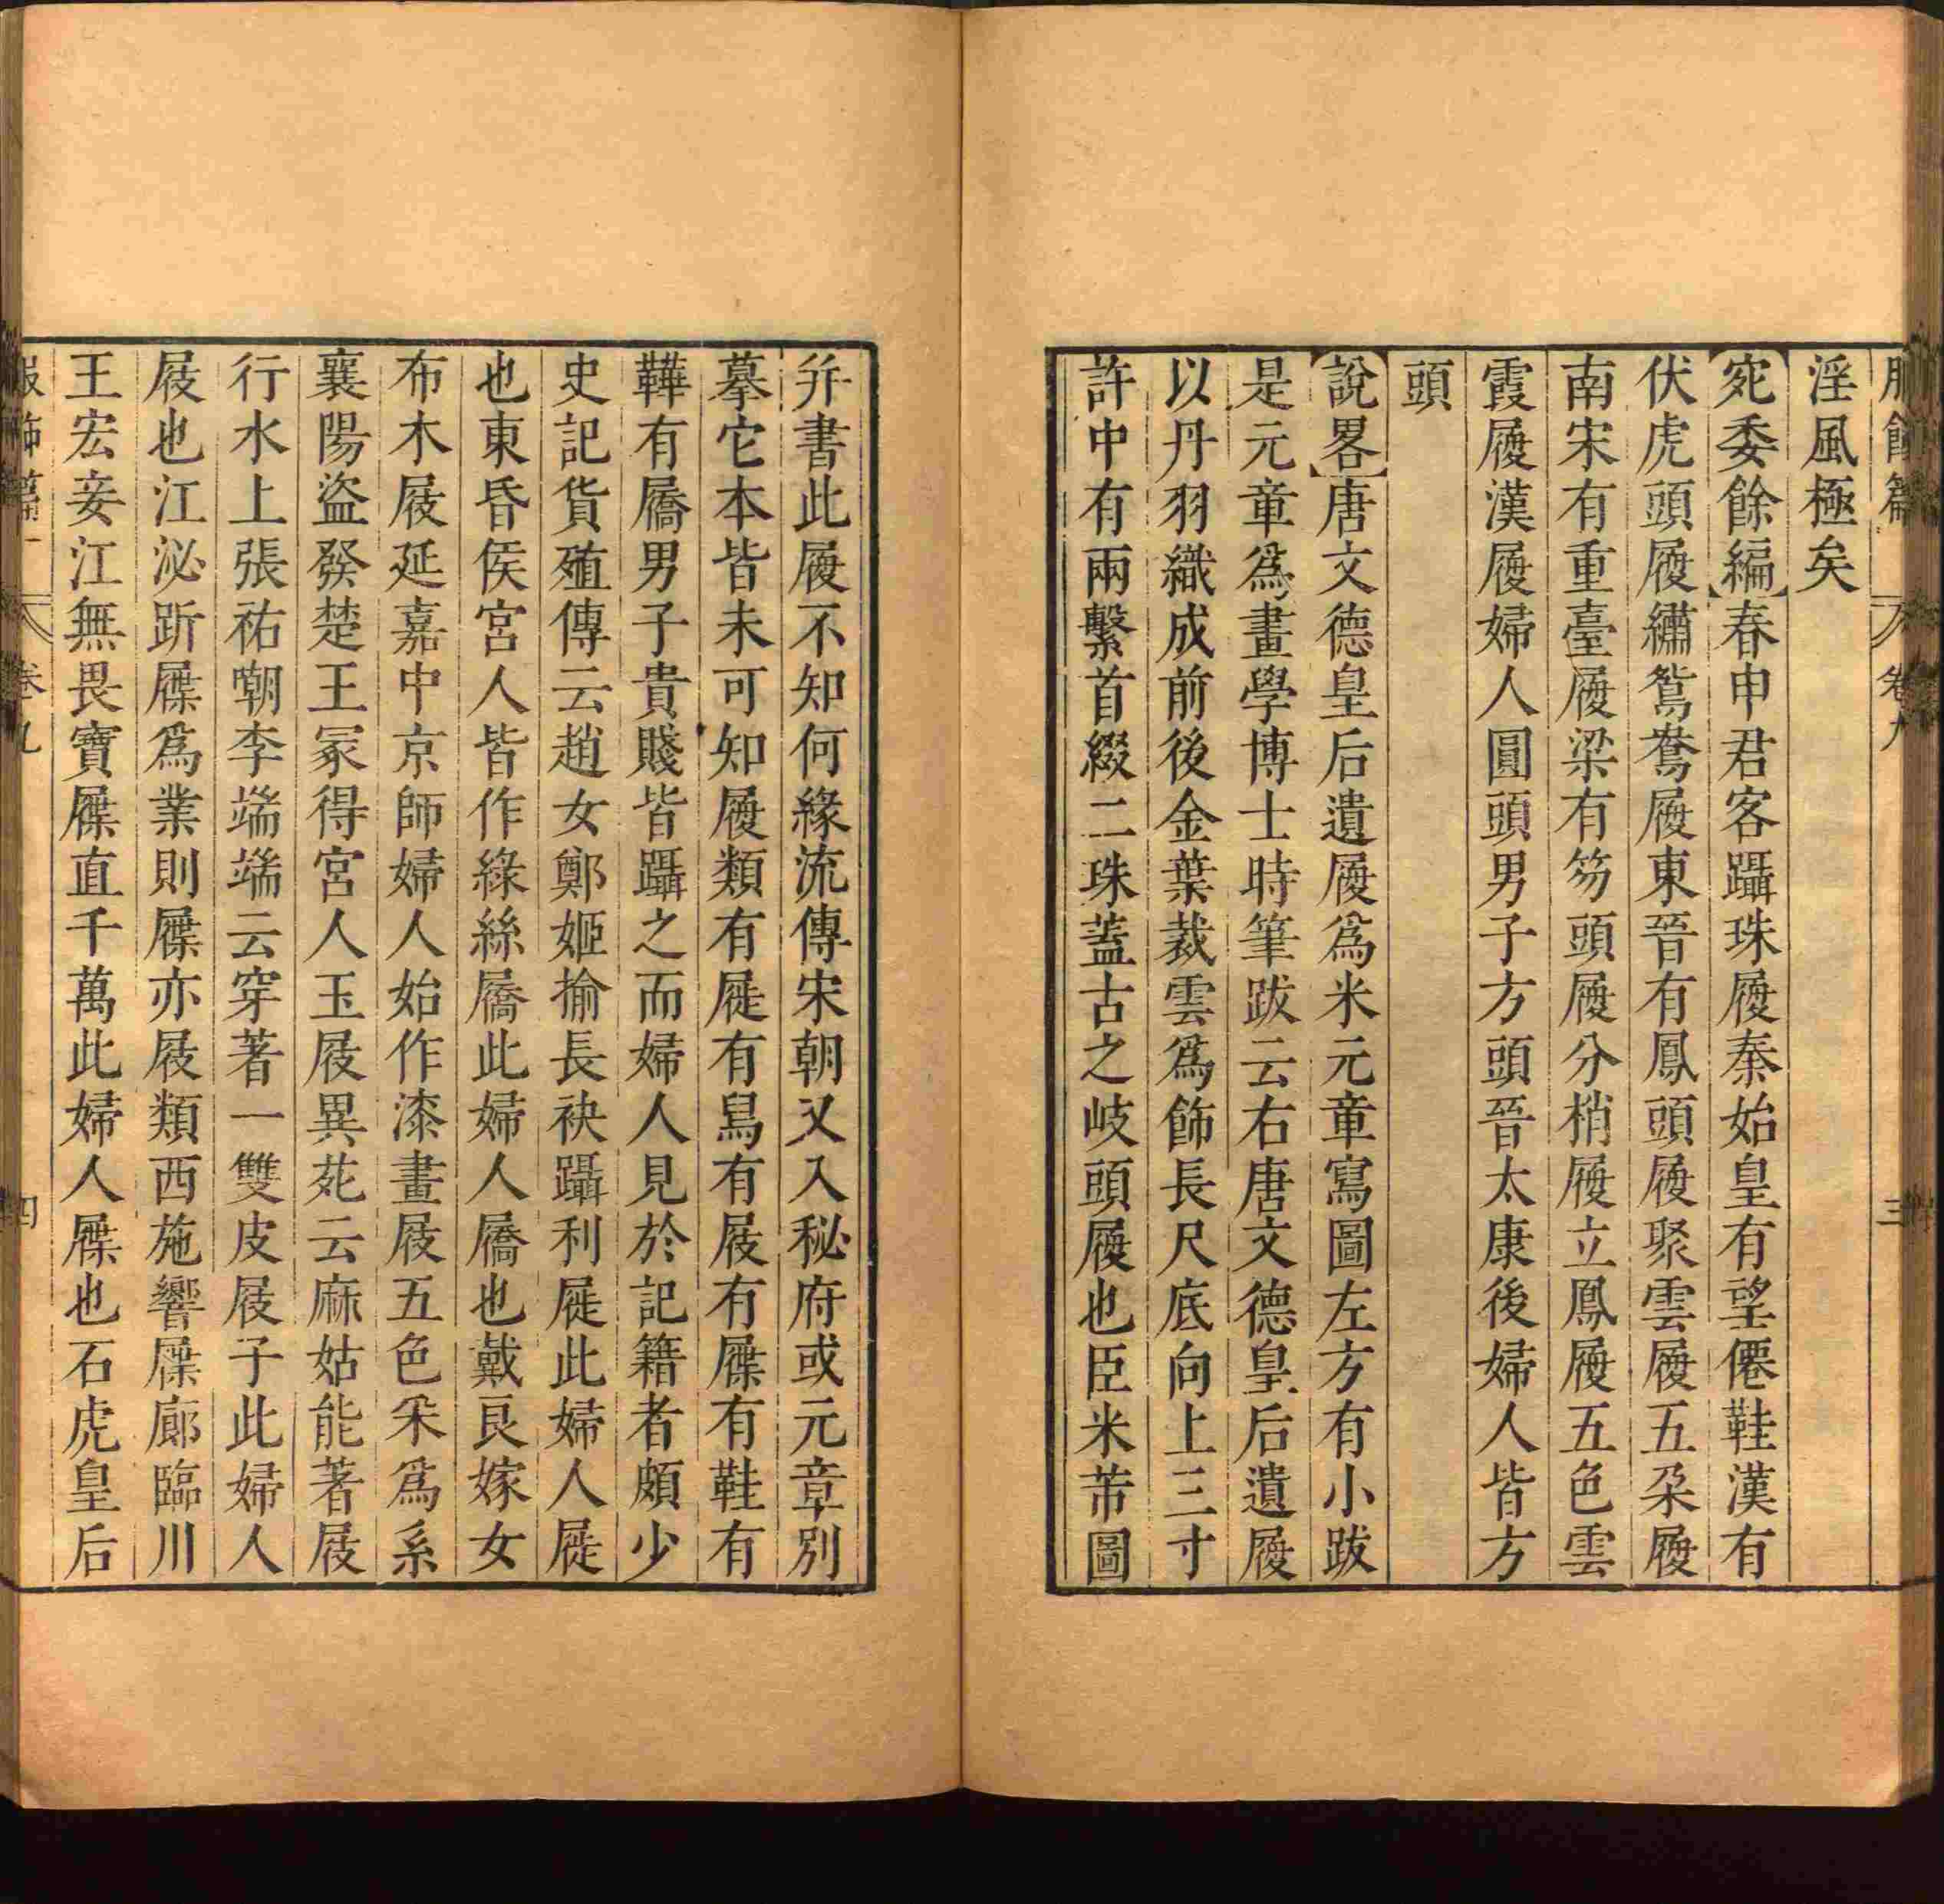 服飾篇 卷九 三
淫風極矣
【宛委餘編】春申君客躡珠履秦始皇有望僊鞋漢有
伏虎頭履繡鴛鴦履東晉有鳳頭履聚雲履五朵履
南宋有重臺履梁有笏頭履分梢履立鳳履五色雲
霞履漢履婦人圓頭男子方頭晉太康後婦人皆方
頭
【說畧】唐文德皇后遺履爲米元章寫圖左方有小跋
是元章爲畫學博士時筆跋云右唐文德皇后遺履
以丹羽織成前後金葉裁雲爲飾長尺底向上三寸
許中有兩繫首綴二珠蓋古之岐頭履也臣米芾圖
并書此履不知何緣流傳宋朝又入秘府或元章別
摹它本皆未可知履類有屣有舄有屐有屧有鞋有
鞾有屩男子貴賤皆躡之而婦人見於記籍者頗少
史記貨殖傳云趙女鄭姬揄長袂躡利屣此婦人屣
也東昏侯宮人皆作綠絲屩此婦人屩也戴良嫁女
布木屐延嘉中京師婦人始作漆畫屐五色采爲系
襄陽盜發楚王冢得宮人玉屐異苑云麻姑能著屐
行水上張祐嘲李端端云穿著一雙皮屐子此婦人
屐也江泌斲屧爲業則屧亦屐類西施響屧廊臨川
王宏妾江無畏寶屧直千萬此婦人屧也石虎皇后
服飾篇 卷九 四